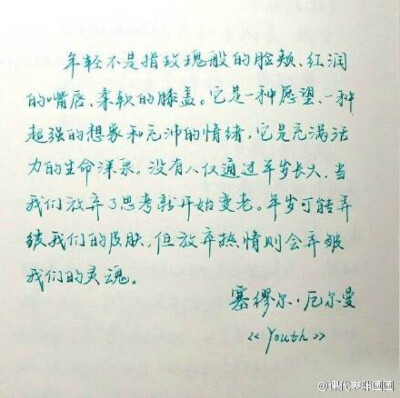 年轻不是指玫瑰般的脸颊、红润
的嘴唇、柔软的膝盖。它是一种愿望、一种
超强的想象和充沛的情绪,它是充满活
力的生命深泉。没有人仅通过年岁长大,当
我们放弃了思考就开始变老。年岁可能弄
皱我们的皮肤,但放弃热情则会弄皱
我们的灵魂。
塞缪尔·厄尔曼
<<Youth>>